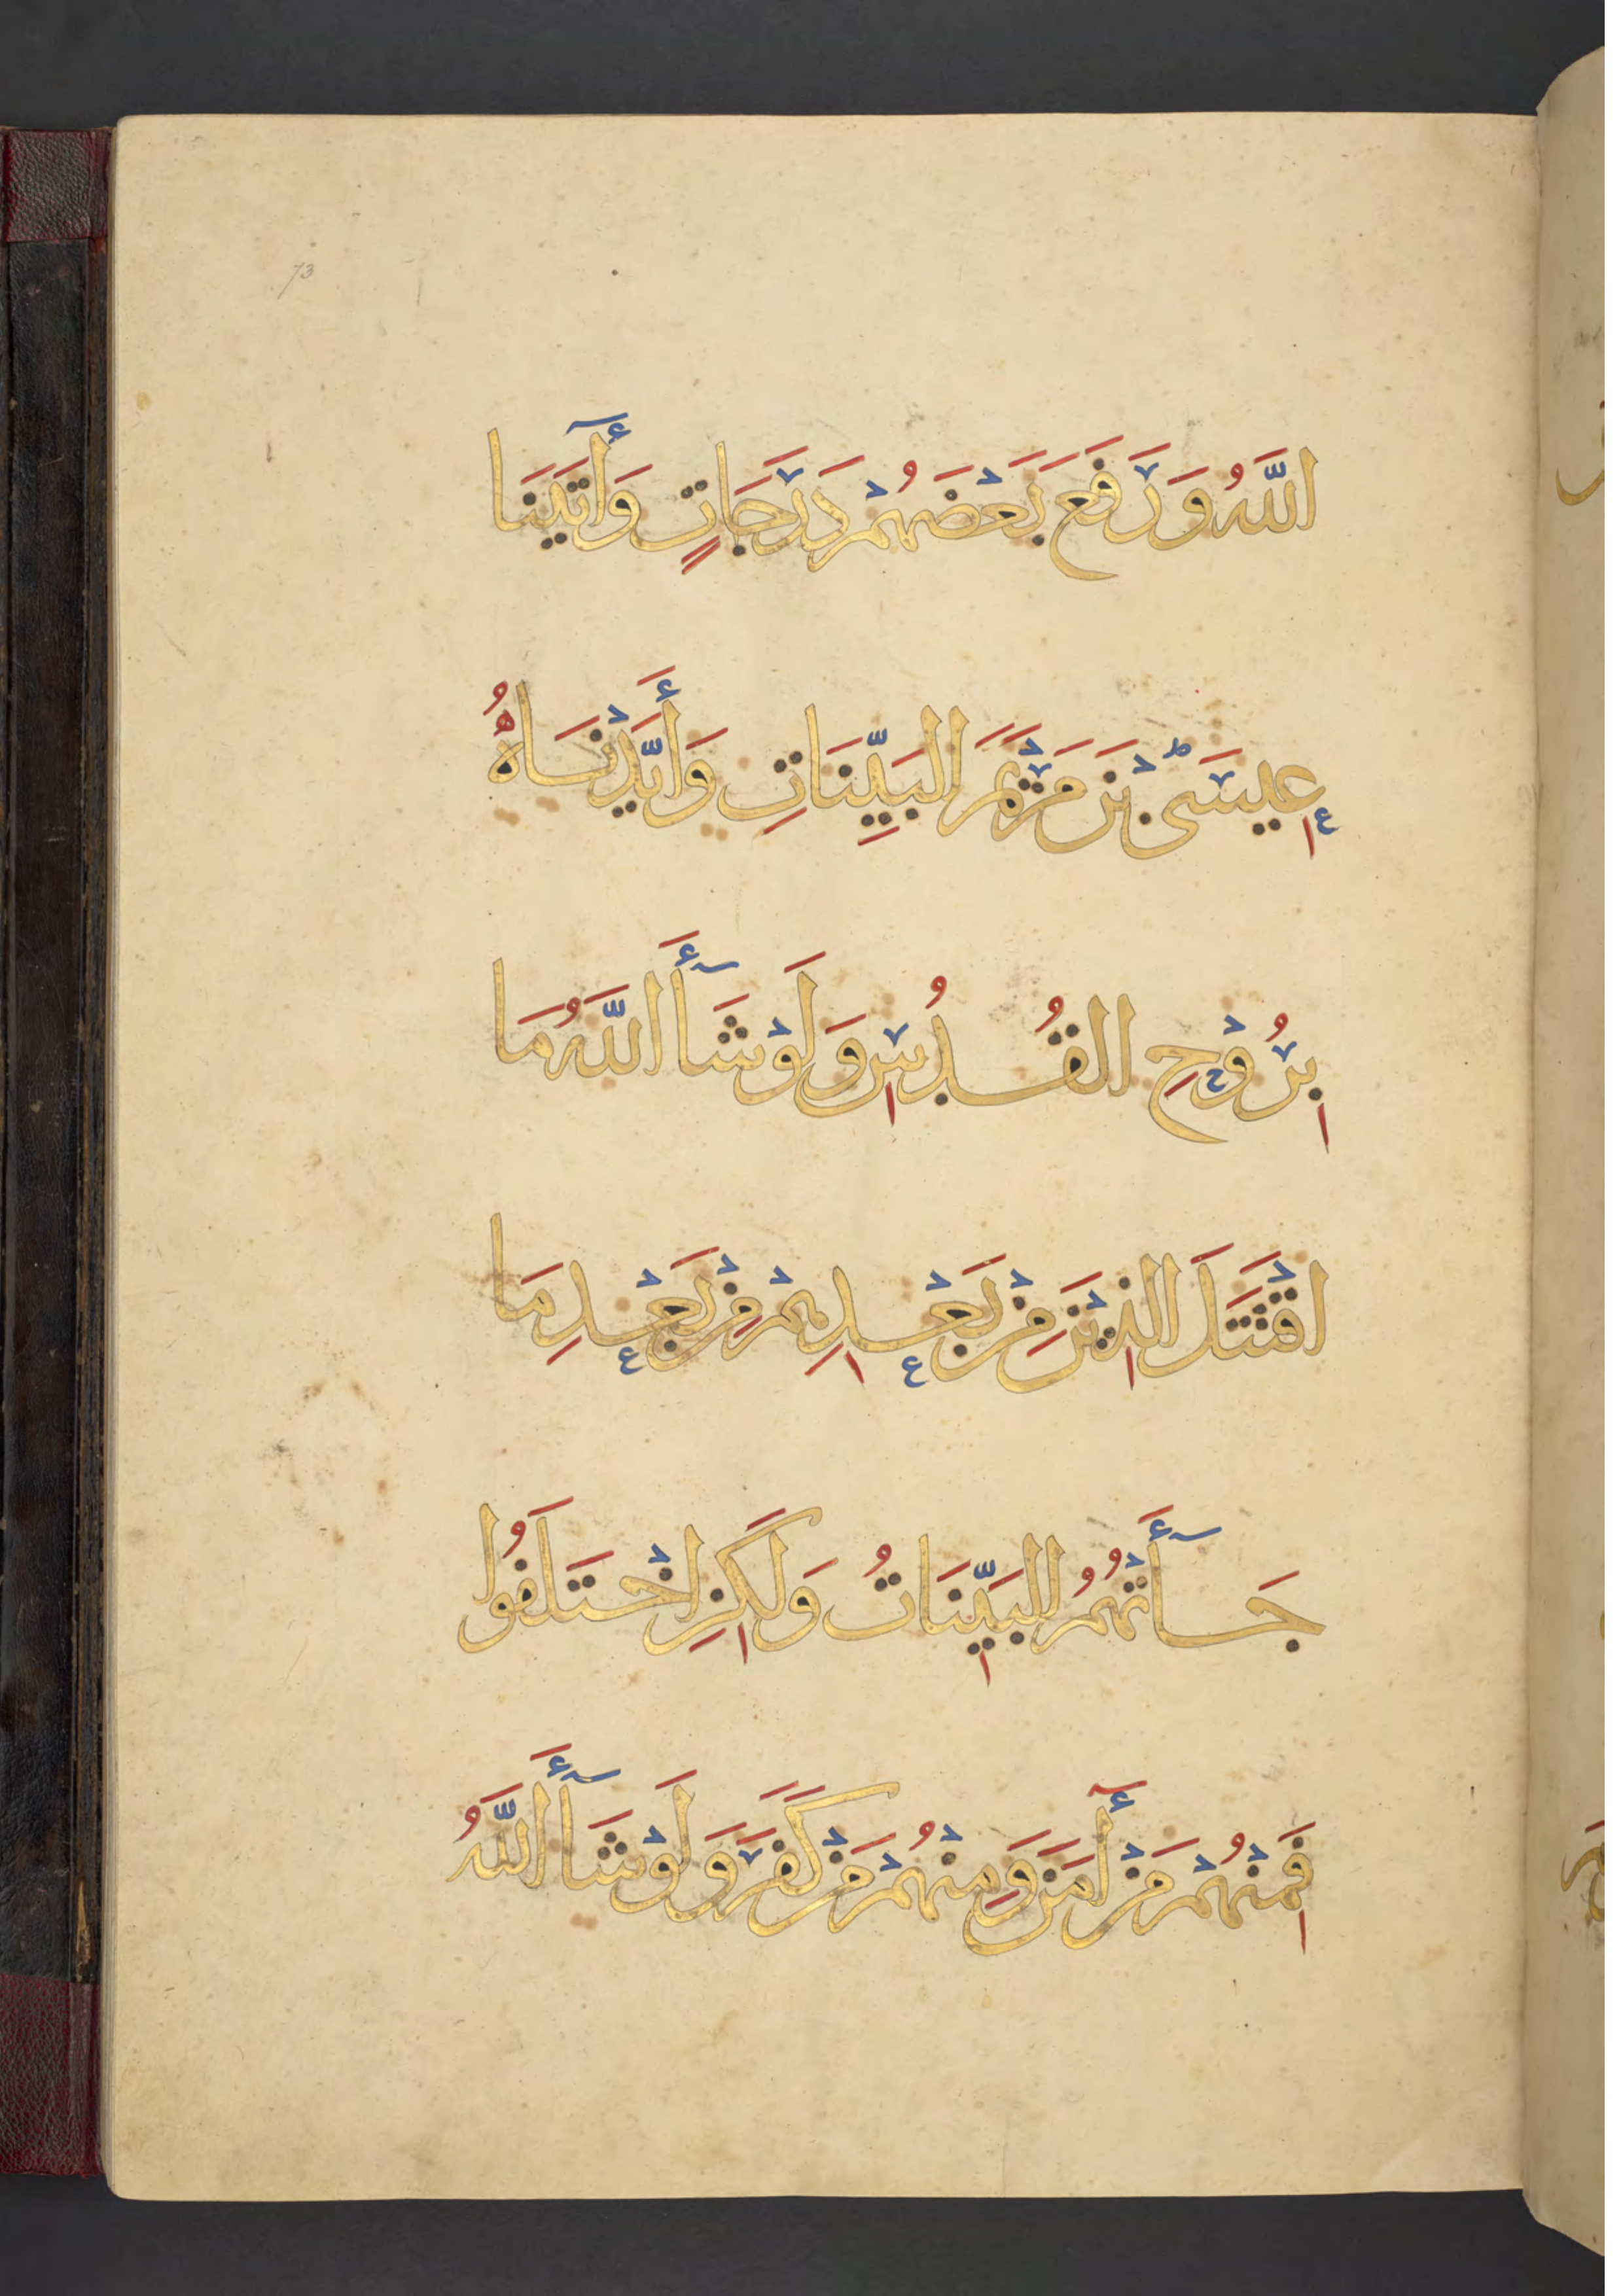 73
اللَّهُ وَرَفَعَ بَعْضَهُمْ دَرَجَاتٍ وَأٓتَيْنَا
عِيسَى بْنَ مَرْيَمَ البَيِّنَاتِ وَأَيَّدْنَاهُ
بِرُوْحِ القُدُسِ وَلَوْ شَآأَ اللَّهُ مَا
اقْتَتَلَ الَّذِيْنَ مِنْ بَعْدِهِمْ مِنْ بَعْدِ مَا
جَآأَتْهُمُ البَيِّنَاتُ وَلَكِنِ اخْتَلَفُوا
فَمِنْهُمْ مَنْ أٓمَنَ وَمِنْهُمْ مَنْ كَفَرَ وَلَوْ شَآأَ اللَّهُ